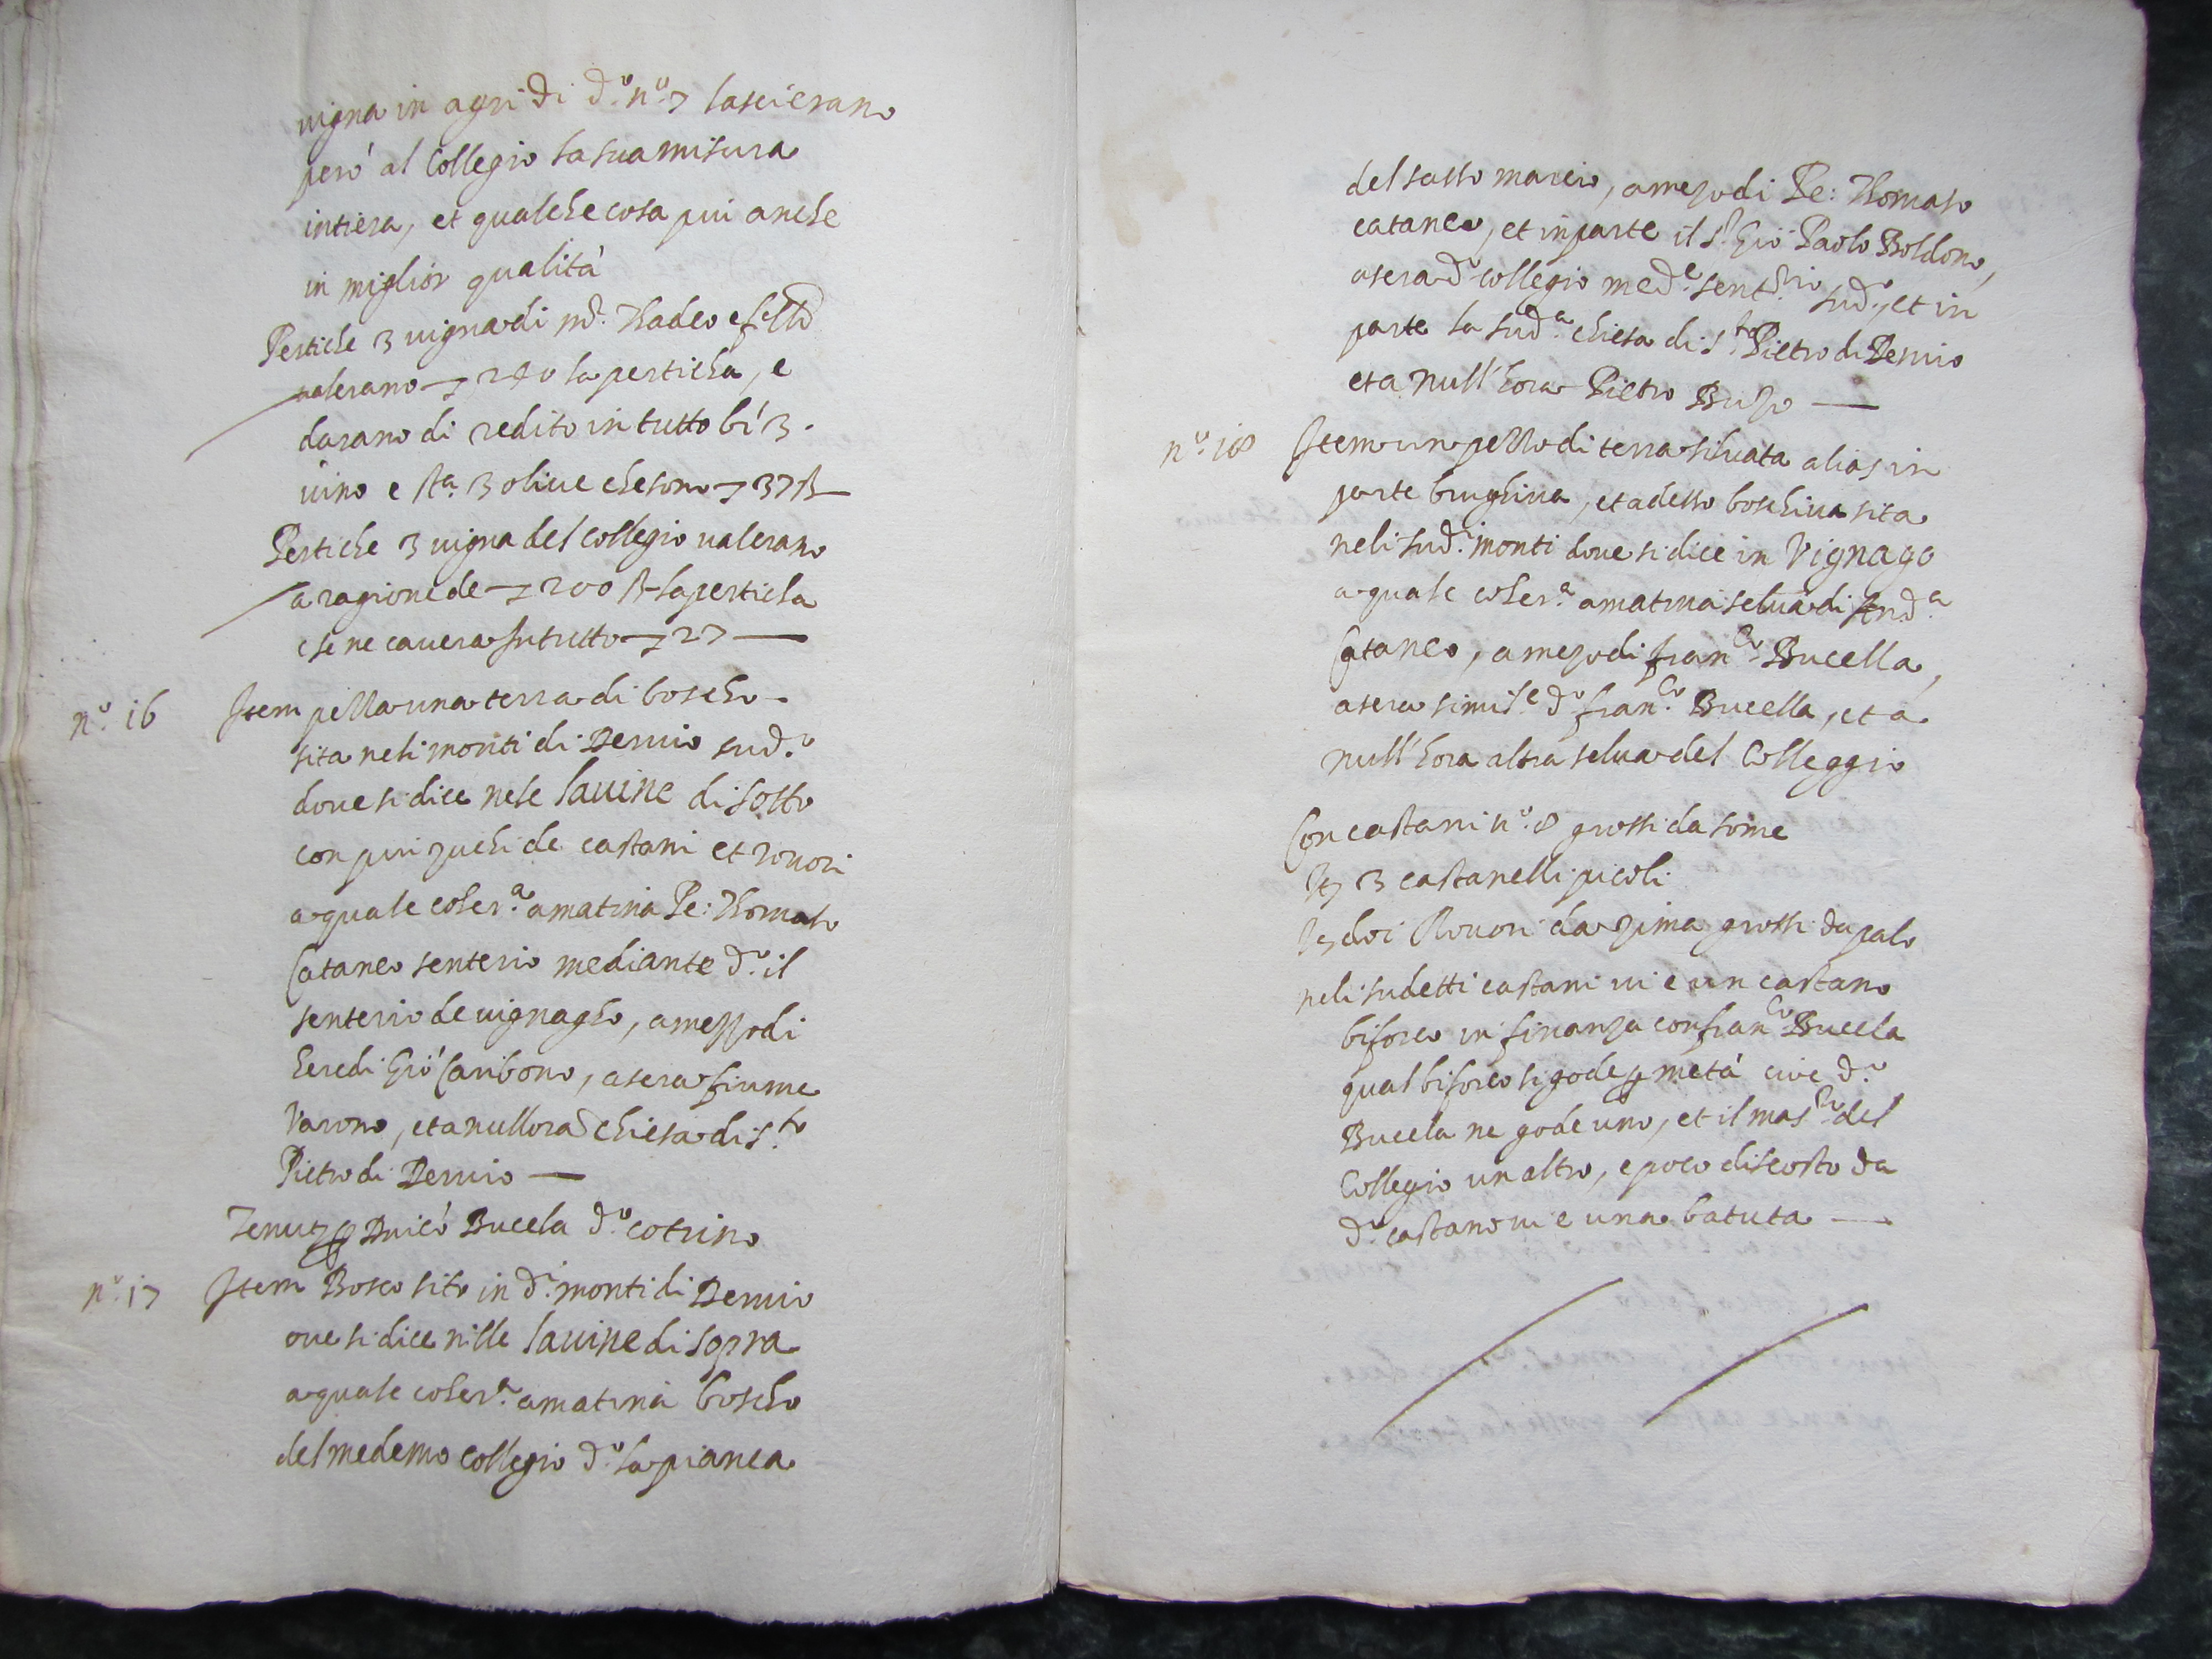 uigna in agri di d.º n.º 7 lascierano
però al Collegio la sua misura
intiera, et qualche cosa piu anche
in miglior qualità
Pertiche 3 uigna di Thadeo
ualerano 240 la perticha, e
darano di redito in tutto 3.
uino e sta. 3 oliue che sono 37
Pertiche 3 uigna del Collegio ualerano
a ragione de 200 la perticha
e se ne cauera in tutto 27 —
n.º 16 Item pezza una terra di boscho
sita neli monti di Deruio sud.º
doue si dice nele lauine di sotto
con piu zuchi de castani et rouori
a quale coher.ª a matina Pe: Thomaso
Cataneo senterio mediante d.º il
senterio de uignagho, a mezzodi
heredi Gio Caribono, a sera fiume
Varono, et a nullora chiesa di s.to
Pietro di Deruio —
Bucela d.º cotrino
n.º 17 Item Bosco sito in d.i monti di Deruio
oue si dice nille lauine di sopra
a quale coher.ª a matina boscho
del medemo Collegio d.º la pianca
del sasso marcio, a mezodi Pe: Thomaso
cataneo, et in parte il s.r Gio Paolo Boldono,
a sera d.º collegio med.e sent.rio sud.º, et in
parte la sud.ª chiesa di s.to Pietro di Deruio
et a null'hora Pietro —
n.º 18 Item un pezzo di terra siluata alias in
parte brughiua, et adesso boschiua sita
neli sud.i monti doue si dice in Vignago
a quale coher.ª a matina selua di And.ª
Cataneo, a mezodi fran.co Bucella,
a sera simil.e d.º fran.co Bucella, et a
null'hora altra selua del Colleggio
Con castani n.º 8 grossi da some
It 3 castanelli picoli
It doi Rouori da zima grossi da palo
neli sudetti castani ui e un castano
biforco in finanza con fran.co Bucela
qual biforco si gode p metà cioe d.º
Bucela ne gode uno, et il mas.ro del
Collegio un altro, e poco discosto da
d.º castano ui e una batuta —